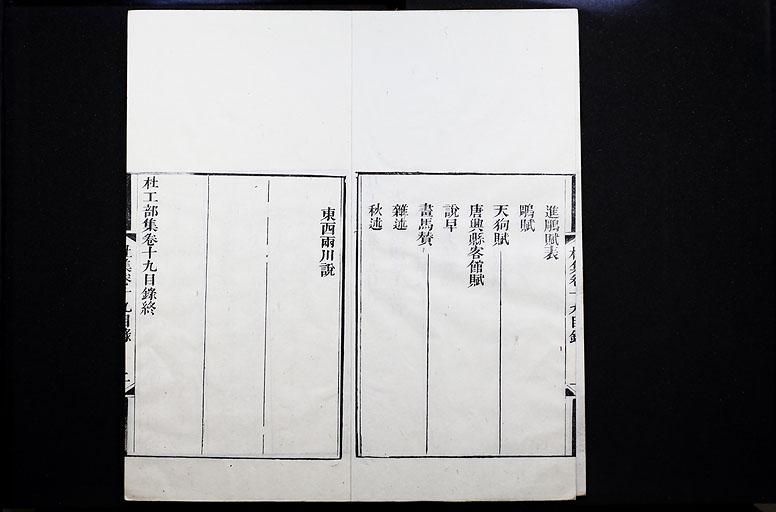 進鵰賦表
鵰賦
天狗賦
唐興縣客館賦
說旱
畫馬贊
雜述
秋述
東西兩川說
杜工部集卷十九目錄終
杜集卷十九目錄
二